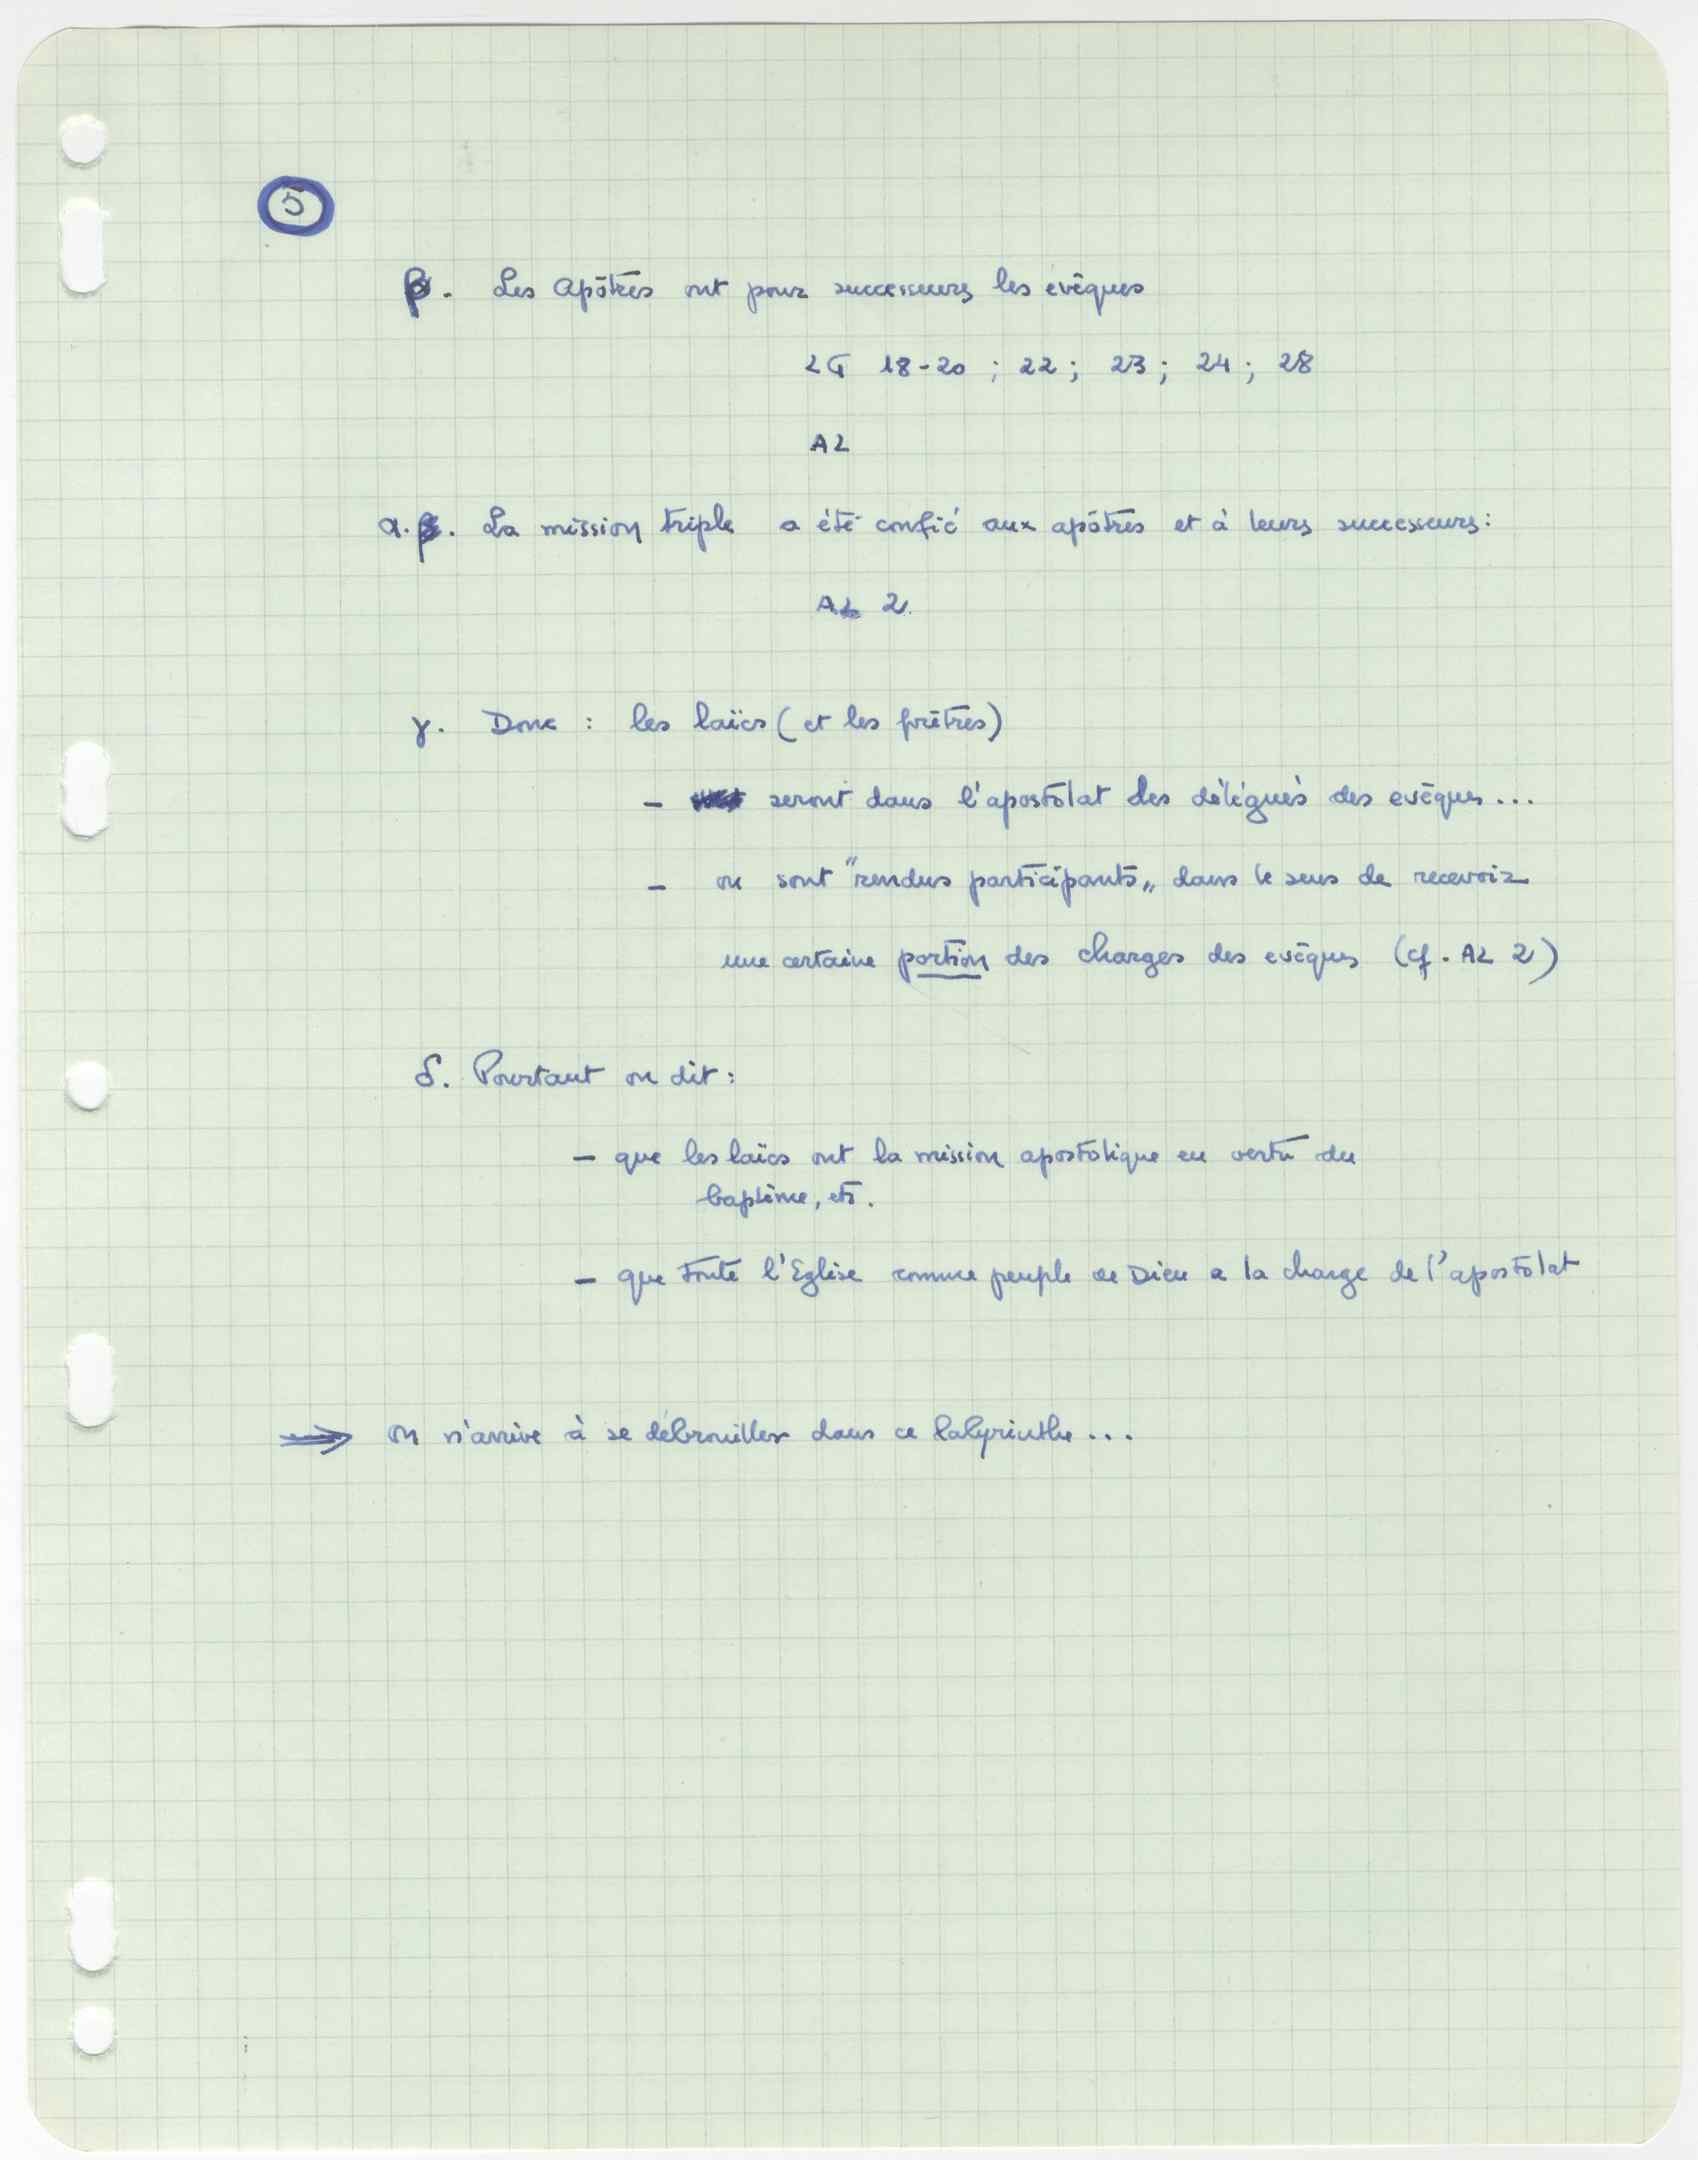 5
β. Les Apôtres ont pour successeurs les évêques
LG 18-20 ; 22 ; 23 ; 24 ; 28
AL
α.β. La mission triple a été confié aux apôtres et à leurs successeurs :
AL 2.
γ. Donc : les laïcs (et les prêtres)
- seront dans l'apostolat des délégués des evêques ...
- ou sont "rendus participants„ dans le sens de recevoir
une certaine portion des charges des evêques (cf. AL 2)
δ. Pourtant on dit :
- que les laïcs ont la mission apostolique en vertu du
baptême, etc.
- que toute l'Eglise comme peuple de Dieu a la charge de l'apostolat
⇒ on n'arrive à se débrouiller dans ce labyrinthe ...